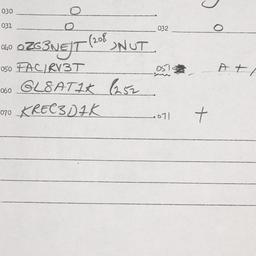 030 O
031 O 032 O
040 OZG3NEJT (208 )NUT
050 FAC/RV3T 051 A +
060 GL8AT1K (252
070 KREC3D1K .071 +